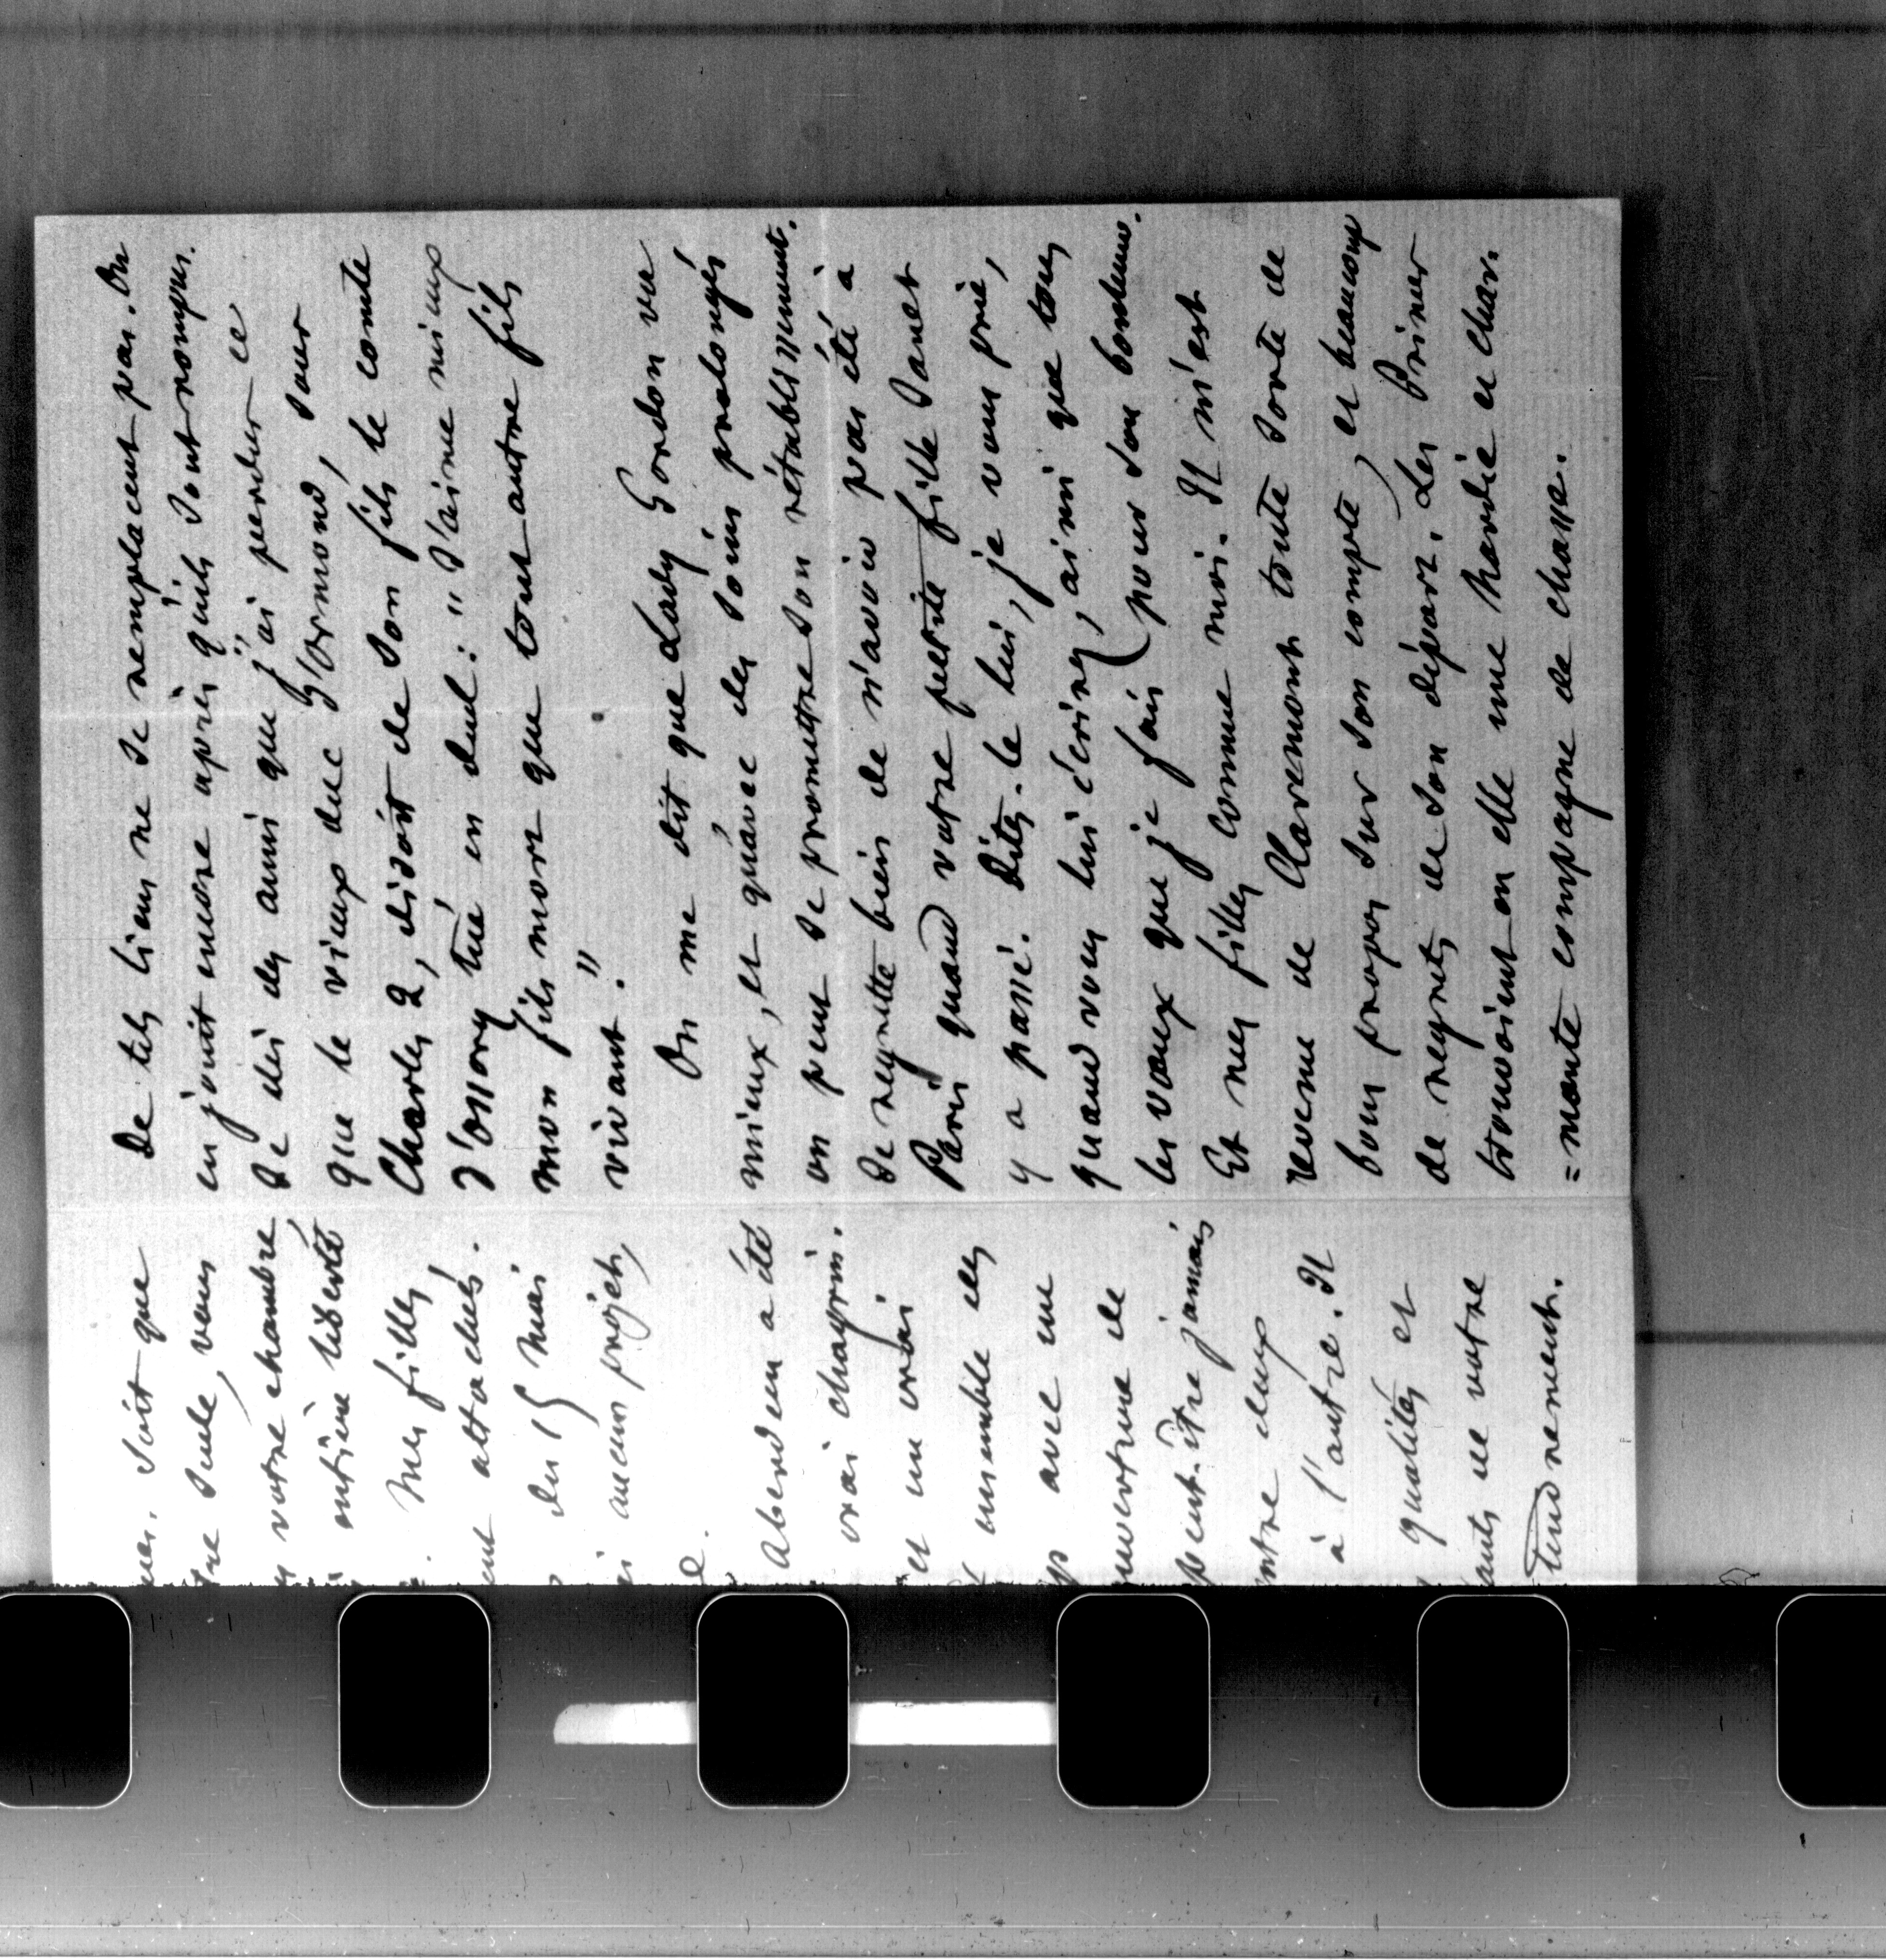 mes. Soit que
tre seule, vous
votre chambre,
entière liberté
. Mes filles,
ent attachés.
des 15 mai
aucun projet,
e.
Aberdeen a été
vrai chagrin.
et un vrai
ensemble des
avec une
ouverture de
peut-être jamais
entre deux
à l'autre. Il
qualités et
ants de votre
Tendrement.
De tels liens ne se remplacent pas. On
en jouit encore après qu'ils sont rompus.
Je dis des amis que j'ai perdus ce
que le vieux duc d'Ormond, sous
Charles 2, disoit de son fils le comte
d'Ossory tué en duel : "J'aime mieux
mon fils mort que tout autre fils
vivant."
On me dit que Lady Gordon va
mieux, et qu'avec des soins prolongés
on peut se promettre son rétablissement.
Je regrette bien de n'avoir pas été à
Paris quand votre petite fille Janet
y a passé. Dites-le lui, je vous prie,
quand vous lui écrirez, ainsi que tous
les vœux que je fais pour son bonheur.
Et mes filles comme moi. Il m'est
revenu de Claremont toute sorte de
bons propos sur son compte, et beaucoup
de regrets de son départ. Les Princes
trouvoient en elle une hardie et char-
=mante compagne de chasse.